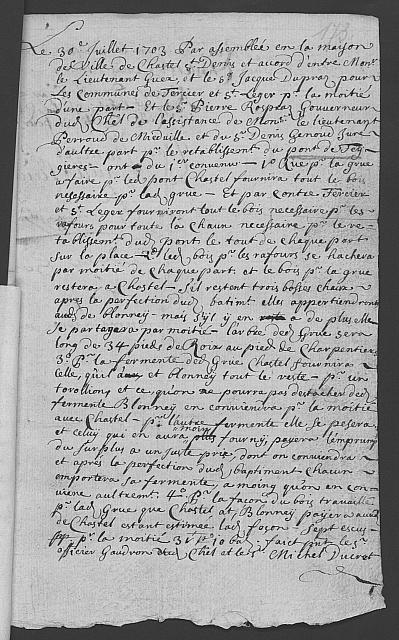 Le 30e Juillet 1703 Par assemblée en la maison
de Ville de Chastel St Denis et accord d'entre Monsr
le Lieutenant Guex et le Sr Jacque Dupraz pour
Les Communes de Tercier et St Leger pr la moitié
d'une part - Et le Sr Pierre Gouverneur
dud Chel de l'assistance de Monsr le lieutenant
Perroud de et du Sr Denis Genoud Juré
d'aultre part pr le retablissement du pont de Fey
gieres - ont du convenu - 1o Que pr la grue
a faire pr led pont Chastel fournira tout le bois
necessaire pr lad grue - Et par contre Tercier
et St Leger fourniront tout le bois necessaire pr les
rafours pour toute la Chaux necessaire pr le re-
tablissement dud pont le tout de chaque part
sur la place - led bois pr les rafours se hachera
par moitié de chaque part et le bois pr la grue
restera a Chastel - Sil restent trois bosses chaux
apres la perfection dud batimt elles appertiendront
aud de blonney mais s'il y en a de plus elle
se partagera par moitié - larbre de Grue sera
long de 34 pieds de Roix au pied de Charpentier
3o Pr la fermente de Grue Chastel fournira
celle, qu'il a et blonney tout le reste - pr un
torollion et ce qu'on ne pourra pas destacher de
fermente Blonney en conviendra pr la moitié
avec Chastel - pr l'autre fermente elle se pesera
et celuy qui en aura moins fourny, payera lemprunt
du surplus a un juste prix, dont on conviendra
et après la perfection dud baptiment chacun
emportera sa fermente, a moing qu'on en con
viene aultremt 4o Pr la façon du bois travaillé
pr lad Grue que Chastel at Blonney payera aud
de Chastel estant estimée lad façon Sept escus
pr la moitié faict par le Sr
officier Gaudron de Chel et le Sr Michel Ducret